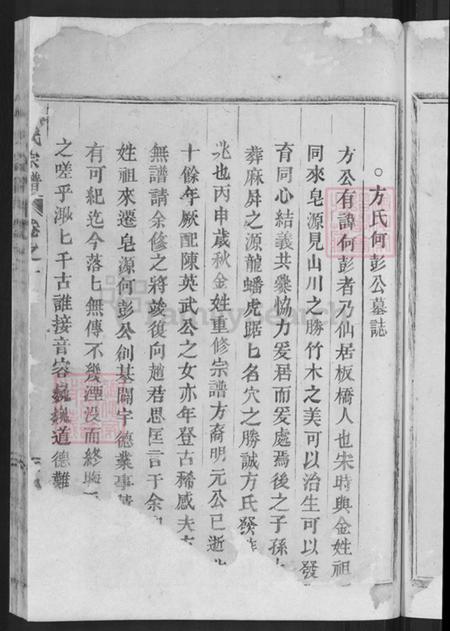 ○方氏何彭公墓誌
方公有諱何彭者乃仙居板橋人也宋時與金姓祖
同來皂源見山川之勝竹木之美可以治生可以發
育同心結義共襄協力爰居而爰處焉後之子孫
葬麻屏之源龍蟠虎踞匕名穴之勝誠方氏發
兆也丙申歲秋金姓重修宗譜方裔明元公已逝
十餘年厥配陳英武公之女亦年登古稀感夫
無譜請余修之將竣復向趙君思匡言于余
姓祖來遷皂源何彭公創基闢宇德業事
有可紀迄今落匕無傳不幾湮沒而終晦
之嗟乎溯匕千古誰接音容巍巍道德難
氏宗譜 卷之